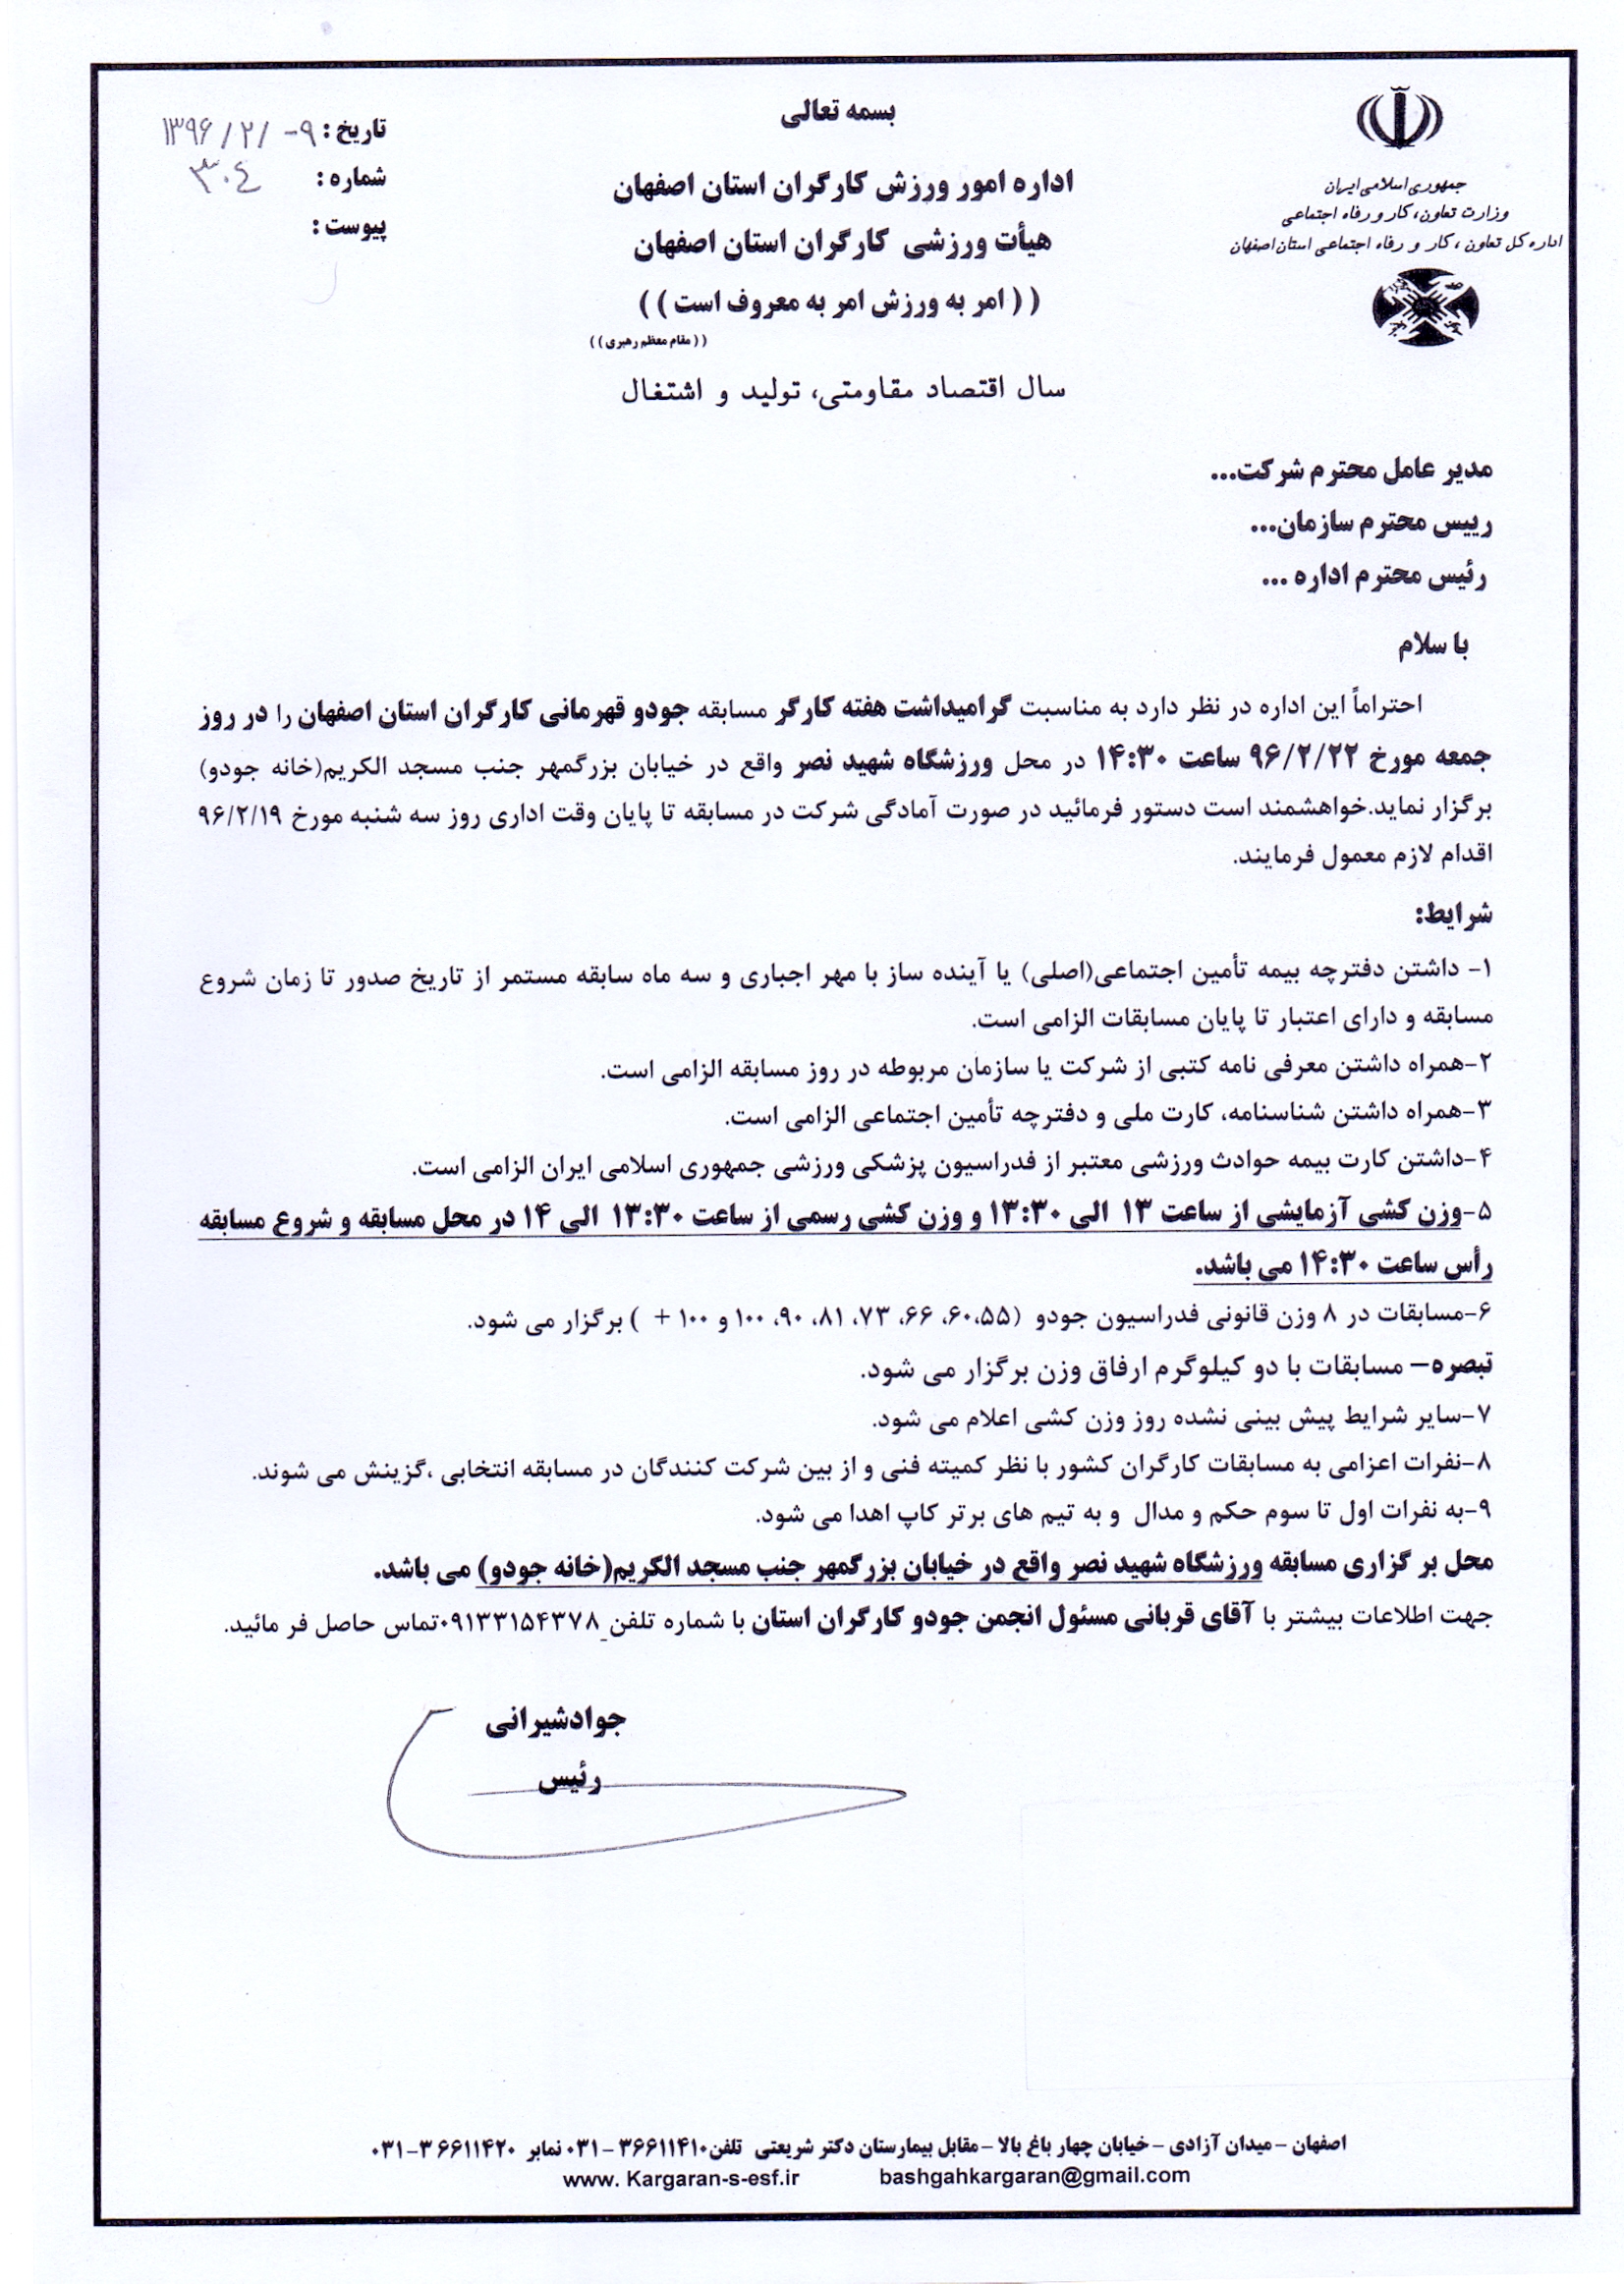 بسمه تعالی
اداره امور ورزش کارگران استان اصفهان
هیأت ورزشی کارگران استان اصفهان
( ( امر به ورزش امر به معروف است ) )
( ( مقام معظم رهبری ) )
سال اقتصاد مقاومتی، تولید و اشتغال
جمهوری اسلامی ایران
وزارت تعاون، کار و رفاه اجتماعی
اداره کل تعاون ، کار و رفاه اجتماعی استان اصفهان
تاریخ : ۹-/۲/۱۳۹۶
شماره : ۳۰۴
پیوست :
مدیر عامل محترم شرکت...
رییس محترم سازمان...
رئیس محترم اداره ...
با سلام
احتراماً این اداره در نظر دارد به مناسبت گرامیداشت هفته کارگر مسابقه جودو قهرمانی کارگران استان اصفهان را در روز
جمعه مورخ ۹۶/۲/۲۲ ساعت ۱۴:۳۰ در محل ورزشگاه شهید نصر واقع در خیابان بزرگمهر جنب مسجد الکریم(خانه جودو)
برگزار نماید.خواهشمند است دستور فرمائید در صورت آمادگی شرکت در مسابقه تا پایان وقت اداری روز سه شنبه مورخ ۹۶/۲/۱۹
اقدام لازم معمول فرمایند.
شرایط:
۱- داشتن دفترچه بیمه تأمین اجتماعی(اصلی) یا آینده ساز با مهر اجباری و سه ماه سابقه مستمر از تاریخ صدور تا زمان شروع
مسابقه و دارای اعتبار تا پایان مسابقات الزامی است.
۲-همراه داشتن معرفی نامه کتبی از شرکت یا سازمان مربوطه در روز مسابقه الزامی است.
۳-همراه داشتن شناسنامه، کارت ملی و دفترچه تأمین اجتماعی الزامی است.
۴-داشتن کارت بیمه حوادث ورزشی معتبر از فدراسیون پزشکی ورزشی جمهوری اسلامی ایران الزامی است.
۵-وزن کشی آزمایشی از ساعت ۱۳ الی ۱۳:۳۰ و وزن کشی رسمی از ساعت ۱۳:۳۰ الی ۱۴ در محل مسابقه و شروع مسابقه
رأس ساعت ۱۴:۳۰ می باشد.
۶-مسابقات در ۸ وزن قانونی فدراسیون جودو (۶۰،۵۵، ۶۶، ۷۳، ۸۱، ۹۰، ۱۰۰ و ۱۰۰ + ) برگزار می شود.
تبصره– مسابقات با دو کیلوگرم ارفاق وزن برگزار می شود.
۷-سایر شرایط پیش بینی نشده روز وزن کشی اعلام می شود.
۸-نفرات اعزامی به مسابقات کارگران کشور با نظر کمیته فنی و از بین شرکت کنندگان در مسابقه انتخابی ،گزینش می شوند.
۹-به نفرات اول تا سوم حکم و مدال و به تیم های برتر کاپ اهدا می شود.
محل بر گزاری مسابقه ورزشگاه شهید نصر واقع در خیابان بزرگمهر جنب مسجد الکریم(خانه جودو) می باشد.
جهت اطلاعات بیشتر با آقای قربانی مسئول انجمن جودو کارگران استان با شماره تلفن_۰۹۱۳۳۱۵۴۳۷۸تماس حاصل فر مائید.
جوادشیرانی
رئیس
اصفهان – میدان آزادی – خیابان چهار باغ بالا – مقابل بیمارستان دکتر شریعتی تلفن۳۶۶۱۱۴۱۰ – ۰۳۱ نمابر ۳۶۶۱۱۴۲۰-۰۳۱
www. Kargaran-s-esf.ir bashgahkargaran@gmail.com